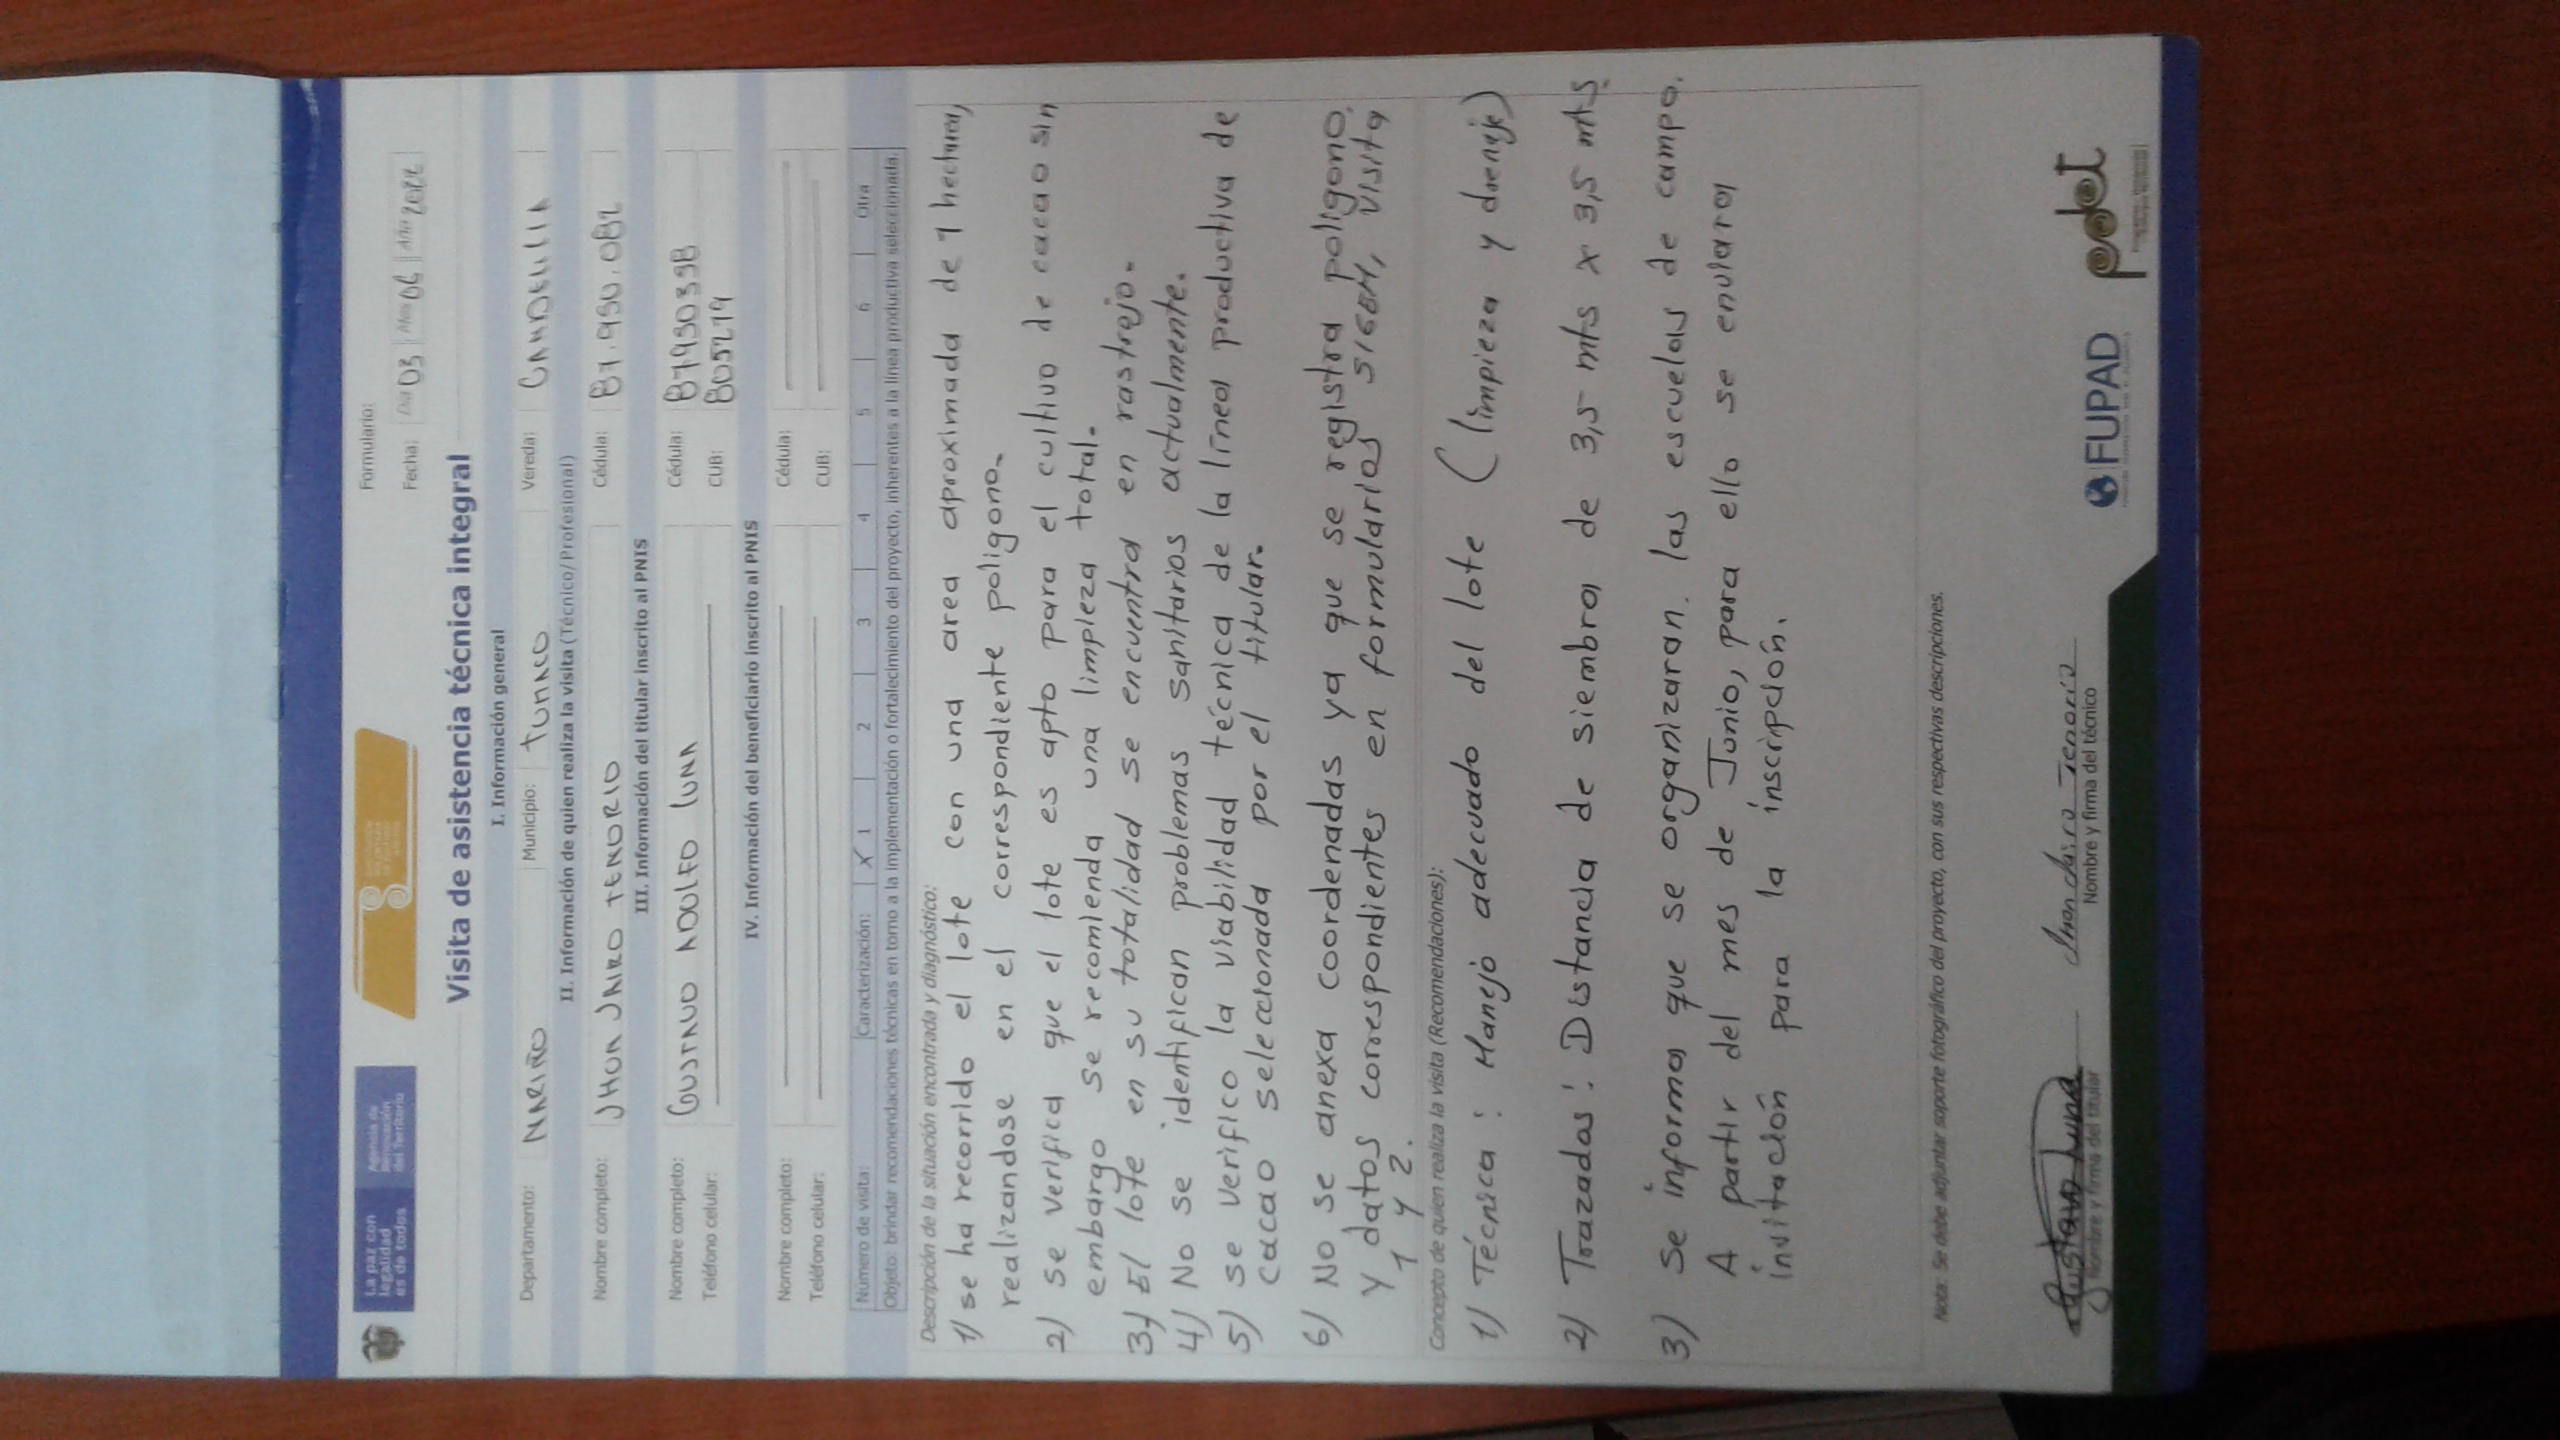 La paz con
legalidad
es de todos
Agencia de
Renovación
del Territorio
Formulario:
Fecha: Día 03 Mes 06 Año 2022
Visita de asistencia técnica integral
I. Información general
Departamento: NARIÑO Municipio: TUMACO Vereda: CANDELILLA
II. Información de quien realiza la visita (Técnico/Profesional)
Nombre completo: JHON JAIRO TENORIO Cédula: 87.950.082
III. Información del titular inscrito al PNIS
Nombre completo: GUSTAVO ADOLFO LUNA Cédula: 87930398
Teléfono celular: CUB: 805279
IV. Información del beneficiario inscrito al PNIS
Nombre completo: Cédula:
Teléfono celular: CUB:
Número de visita: Caracterización: X 1 2 3 4 5 6 Otra
Objeto: brindar recomendaciones técnicas en torno a la implementación o fortalecimiento del proyecto, inherentes a la línea productiva seleccionada.
Descripción de la situación encontrada y diagnóstico:
1) se ha recorrido el lote con una area aproximada de 1 hectarea,
realizandose en el correspondiente poligono.
2) se verifica que el lote es apto para el cultivo de cacao sin
embargo se recomienda una limpieza total.
3) El lote en su totalidad se encuentra en rastrojo.
4) No se identifican problemas sanitarios actualmente.
5) se verifico la viabilidad técnica de la línea productiva de
cacao seleccionada por el titular.
6) No se anexa coordenadas ya que se registra poligono,
y datos correspondientes en formularios SIGEM, visita
1 y 2.
Concepto de quien realiza la visita (Recomendaciones):
1) Técnica: Manejo adecuado del lote (limpieza y drenaje)
2) Trazados: Distancia de siembra de 3,5 mts x 3,5 mts.
3) Se informa que se organizaran las escuelas de campo.
A partir del mes de Junio, para ello se enviara
invitación para la inscripción.
Nota: Se debe adjuntar soporte fotográfico del proyecto, con sus respectivas descripciones.
Gustavo Luna
Nombre y firma del titular
Jhon Jairo Tenorio
Nombre y firma del técnico
FUPAD
pdet